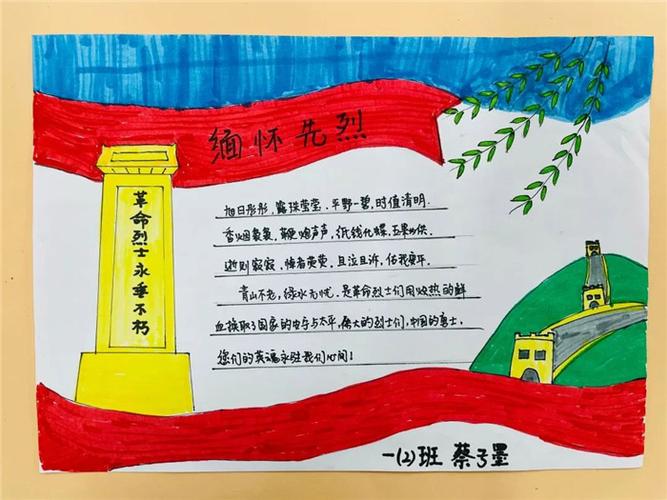 缅怀先烈
革命烈士永垂不朽
旭日彤彤,露珠莹莹,平野一碧,时值清明.
香烟袅袅,鞭炮声声,纸钱化蝶,五果供.
逝则寂寂,悼者茕茕,且泣且诉,佑我康平.
青山不老,绿水无忧,是革命烈士们用炽热的鲜
血换取了国家的安宁与太平,伟大的烈士们,中国的勇士,
您们的英魂永驻我们心间!
一(2)班 蔡子墨